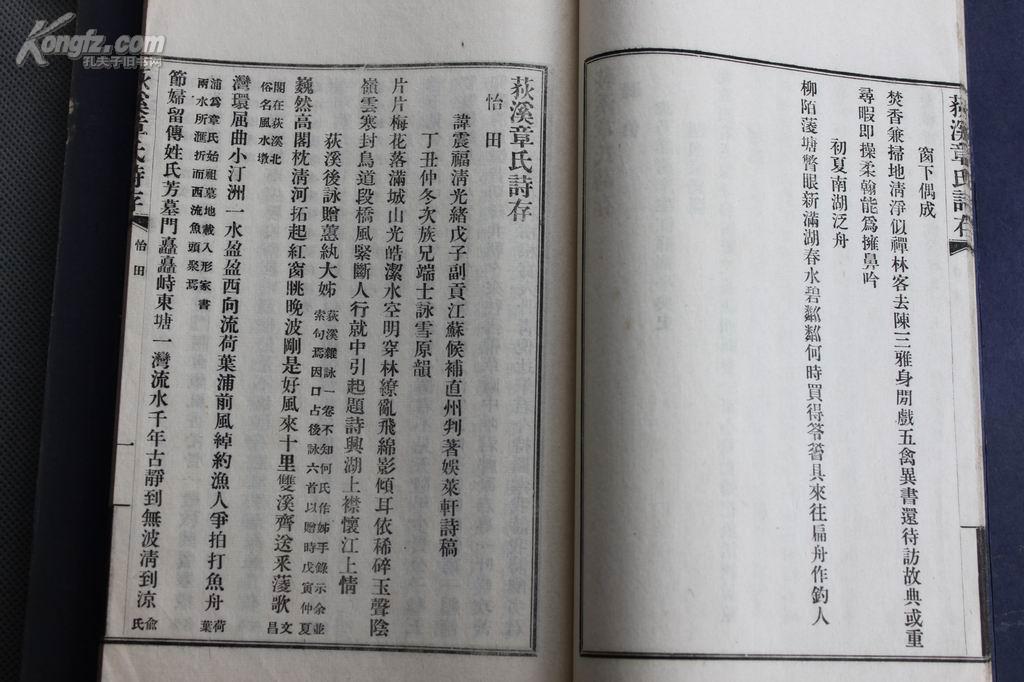 荻溪章氏詩存
窗下偶成
焚香兼掃地清淨似禪林客去陳三雅身閒戲五禽異書還待訪故典或重
尋暇即操柔翰能爲擁鼻吟
初夏南湖泛舟
柳陌蔆塘瞥眼新滿湖春水碧粼粼何時買得笭箵具來往扁舟作釣人
荻溪章氏詩存
怡田
諱震福清光緒戊子副貢江蘇候補直州判著娛萊軒詩稿
丁丑仲冬次族兄端士詠雪原韻
片片梅花落滿城山光皓潔水空明穿林繚亂飛綿影傾耳依稀碎玉聲陰
嶺雲寒封鳥道段橋風緊斷人行就中引起題詩興湖上襟懷江上情
荻溪後詠贈蕙紈大姊
荻溪雜詠一卷不知何氏作姊手錄示余並
索句焉因口占後詠六首以贈時戊寅仲夏
巍然高閣枕清河拓起紅窗眺晚波剛是好風來十里雙溪齊送采蔆歌
文昌
閣在荻溪北
俗名風水墩
灣環屈曲小汀洲一水盈盈西向流荷葉浦前風綽約漁人爭拍打魚舟
荷葉
浦爲章氏始祖墓地載入形家書
兩水所滙折而西流魚頭聚焉
節婦留傳姓氏芳墓門矗矗峙東塘一灣流水千年古靜到無波清到涼
俞氏
荻溪章氏詩存
怡田
一
Kongfz.com
孔夫子旧书网